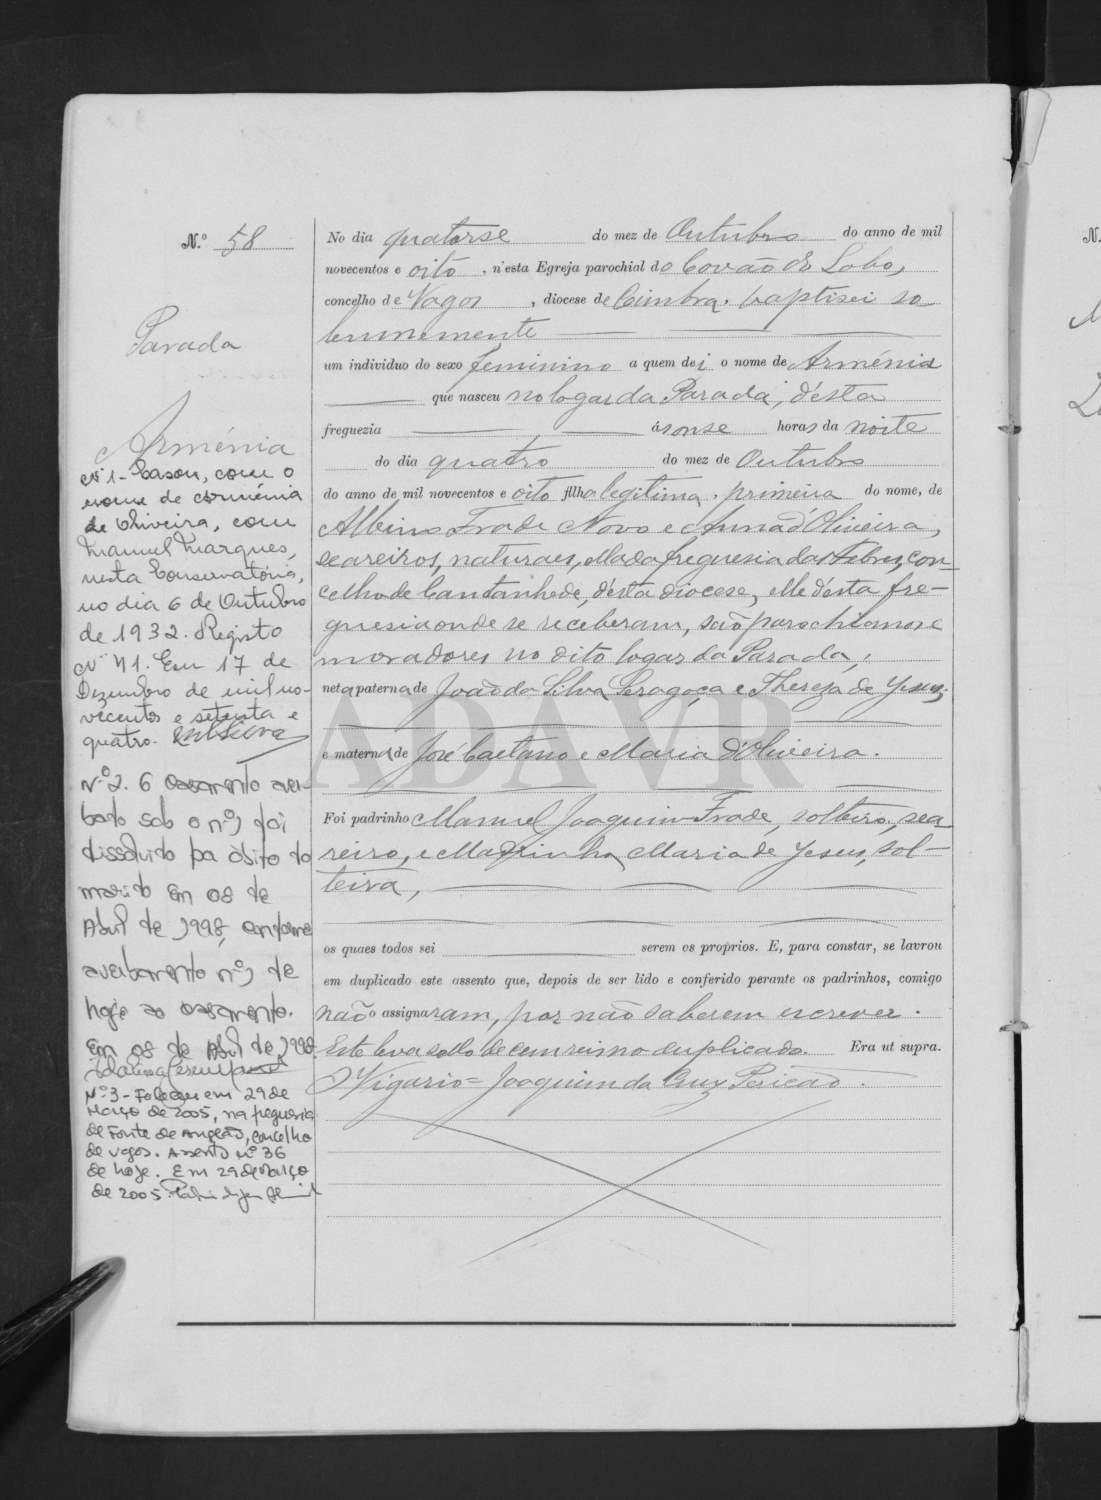 N.º 58
Parada
Arménia
Nº 1 - Casou, com o
nome de Arménia
de Oliveira, com
Manuel Marques,
nesta Conservatória,
no dia 6 de Outubro
de 1932. Registo
Nº 41. Em 17 de
Dezembro de mil no-
vecentos e setenta e
quatro.
Nº 2. O casamento aver-
bado sob o nº 1 foi
dissolvido por óbito do
marido em 08 de
Abril de 1998, conforme
averbamento nº 1 de
hoje ao casamento.
Em 08 de Abril de 1998.
Nº 3 - Faleceu em 29 de
Março de 2005, na freguesia
de Fonte de Angeão, concelho
de Vagos. Assento nº 36
de hoje. Em 29 de Março
de 2005.
No dia quatorse do mez de Outubro do anno de mil
novecentos e oito, n'esta Egreja parochial do Covão do Lobo,
concelho de Vagos, diocese de Coimbra. baptisei so
lennemente
um individuo do sexo feminino a quem dei o nome de Arménia
que nasceu no logar da Parada, d'esta
freguezia ás onse horas da noite
do dia quatro do mez de Outubro
do anno de mil novecentos e oito filha legitima, primeira do nome, de
Albino Frade Novo e Anna d'Oliveira,
seareiros, naturaes, ella da freguesia das Febres, con-
celho de Cantanhede, d'esta diocese, elle d'esta fre-
guesia onde se receberam, são parochianos e
moradores no dito logar da Parada,
neta paterna de João da Silva Peragoça e Thereza de Jesus;
e materna de José Caetano e Maria d'Oliveira.
Foi padrinho Manuel Joaquim Frade, solteiro, sea
reiro, e Madrinha Maria de Jesus, sol-
teira,
os quaes todos sei serem os proprios. E, para constar, se lavrou
em duplicado este assento que, depois de ser lido e conferido perante os padrinhos, comigo
não o assignaram, por não saberem escrever.
Este leva sello de cem reis no duplicado. Era ut supra.
O Vigario = Joaquim da Cruz Pericão.
ADAVR
N.